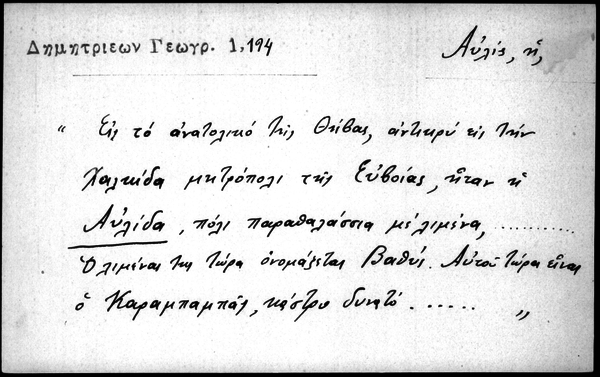 Δημητριεων Γεωγρ. 1,194
Αὐλίς, ἡ,
" Εἰς τό ἀνατολικό τῆς Θήβας, ἀντικρύ εἰς τήν
Χαλκίδα μητρόπολι τῆς Εὐβοίας, ἦταν ἡ
Αὐλίδα, πόλι παραθαλάσσια μέ λιμένα, ............
Ὁ λιμένας της τώρα ὀνομάζεται Βαθύς. Αὐτοῦ τώρα εἶναι
ὁ Καραμπαμπᾶς, κάστρο δυνατό . ..... "